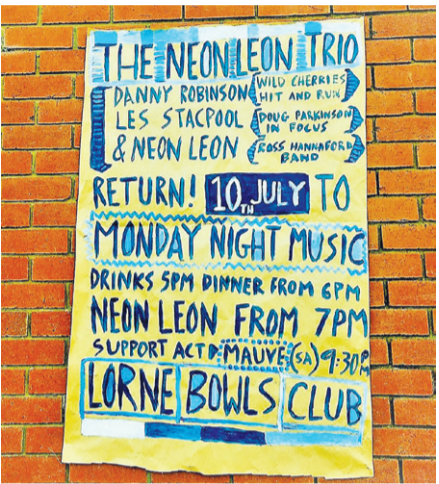 THE NEON LEON TRIO
DANNY ROBINSON (WILD CHERRIES HIT AND RUN)
LES STACPOOL (DOUG PARKINSON IN FOCUS)
& NEON LEON (ROSS HANNAFORD BAND)
RETURN! 10TH JULY TO
MONDAY NIGHT MUSIC
DRINKS 5PM DINNER FROM 6PM
NEON LEON FROM 7PM
SUPPORT ACT D MAUVE (SA) 9:30PM
LORNE BOWLS CLUB